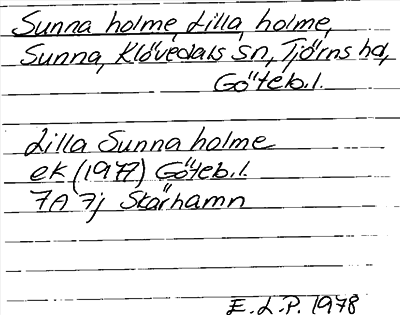 Sunna holme, Lilla, holme,
Sunna, Klövedals sn, Tjörns hd,
Göteb.l.
Lilla Sunna holme
ek (1977) Göteb.l.
7A 7j Skärhamn
E.L.P. 1978